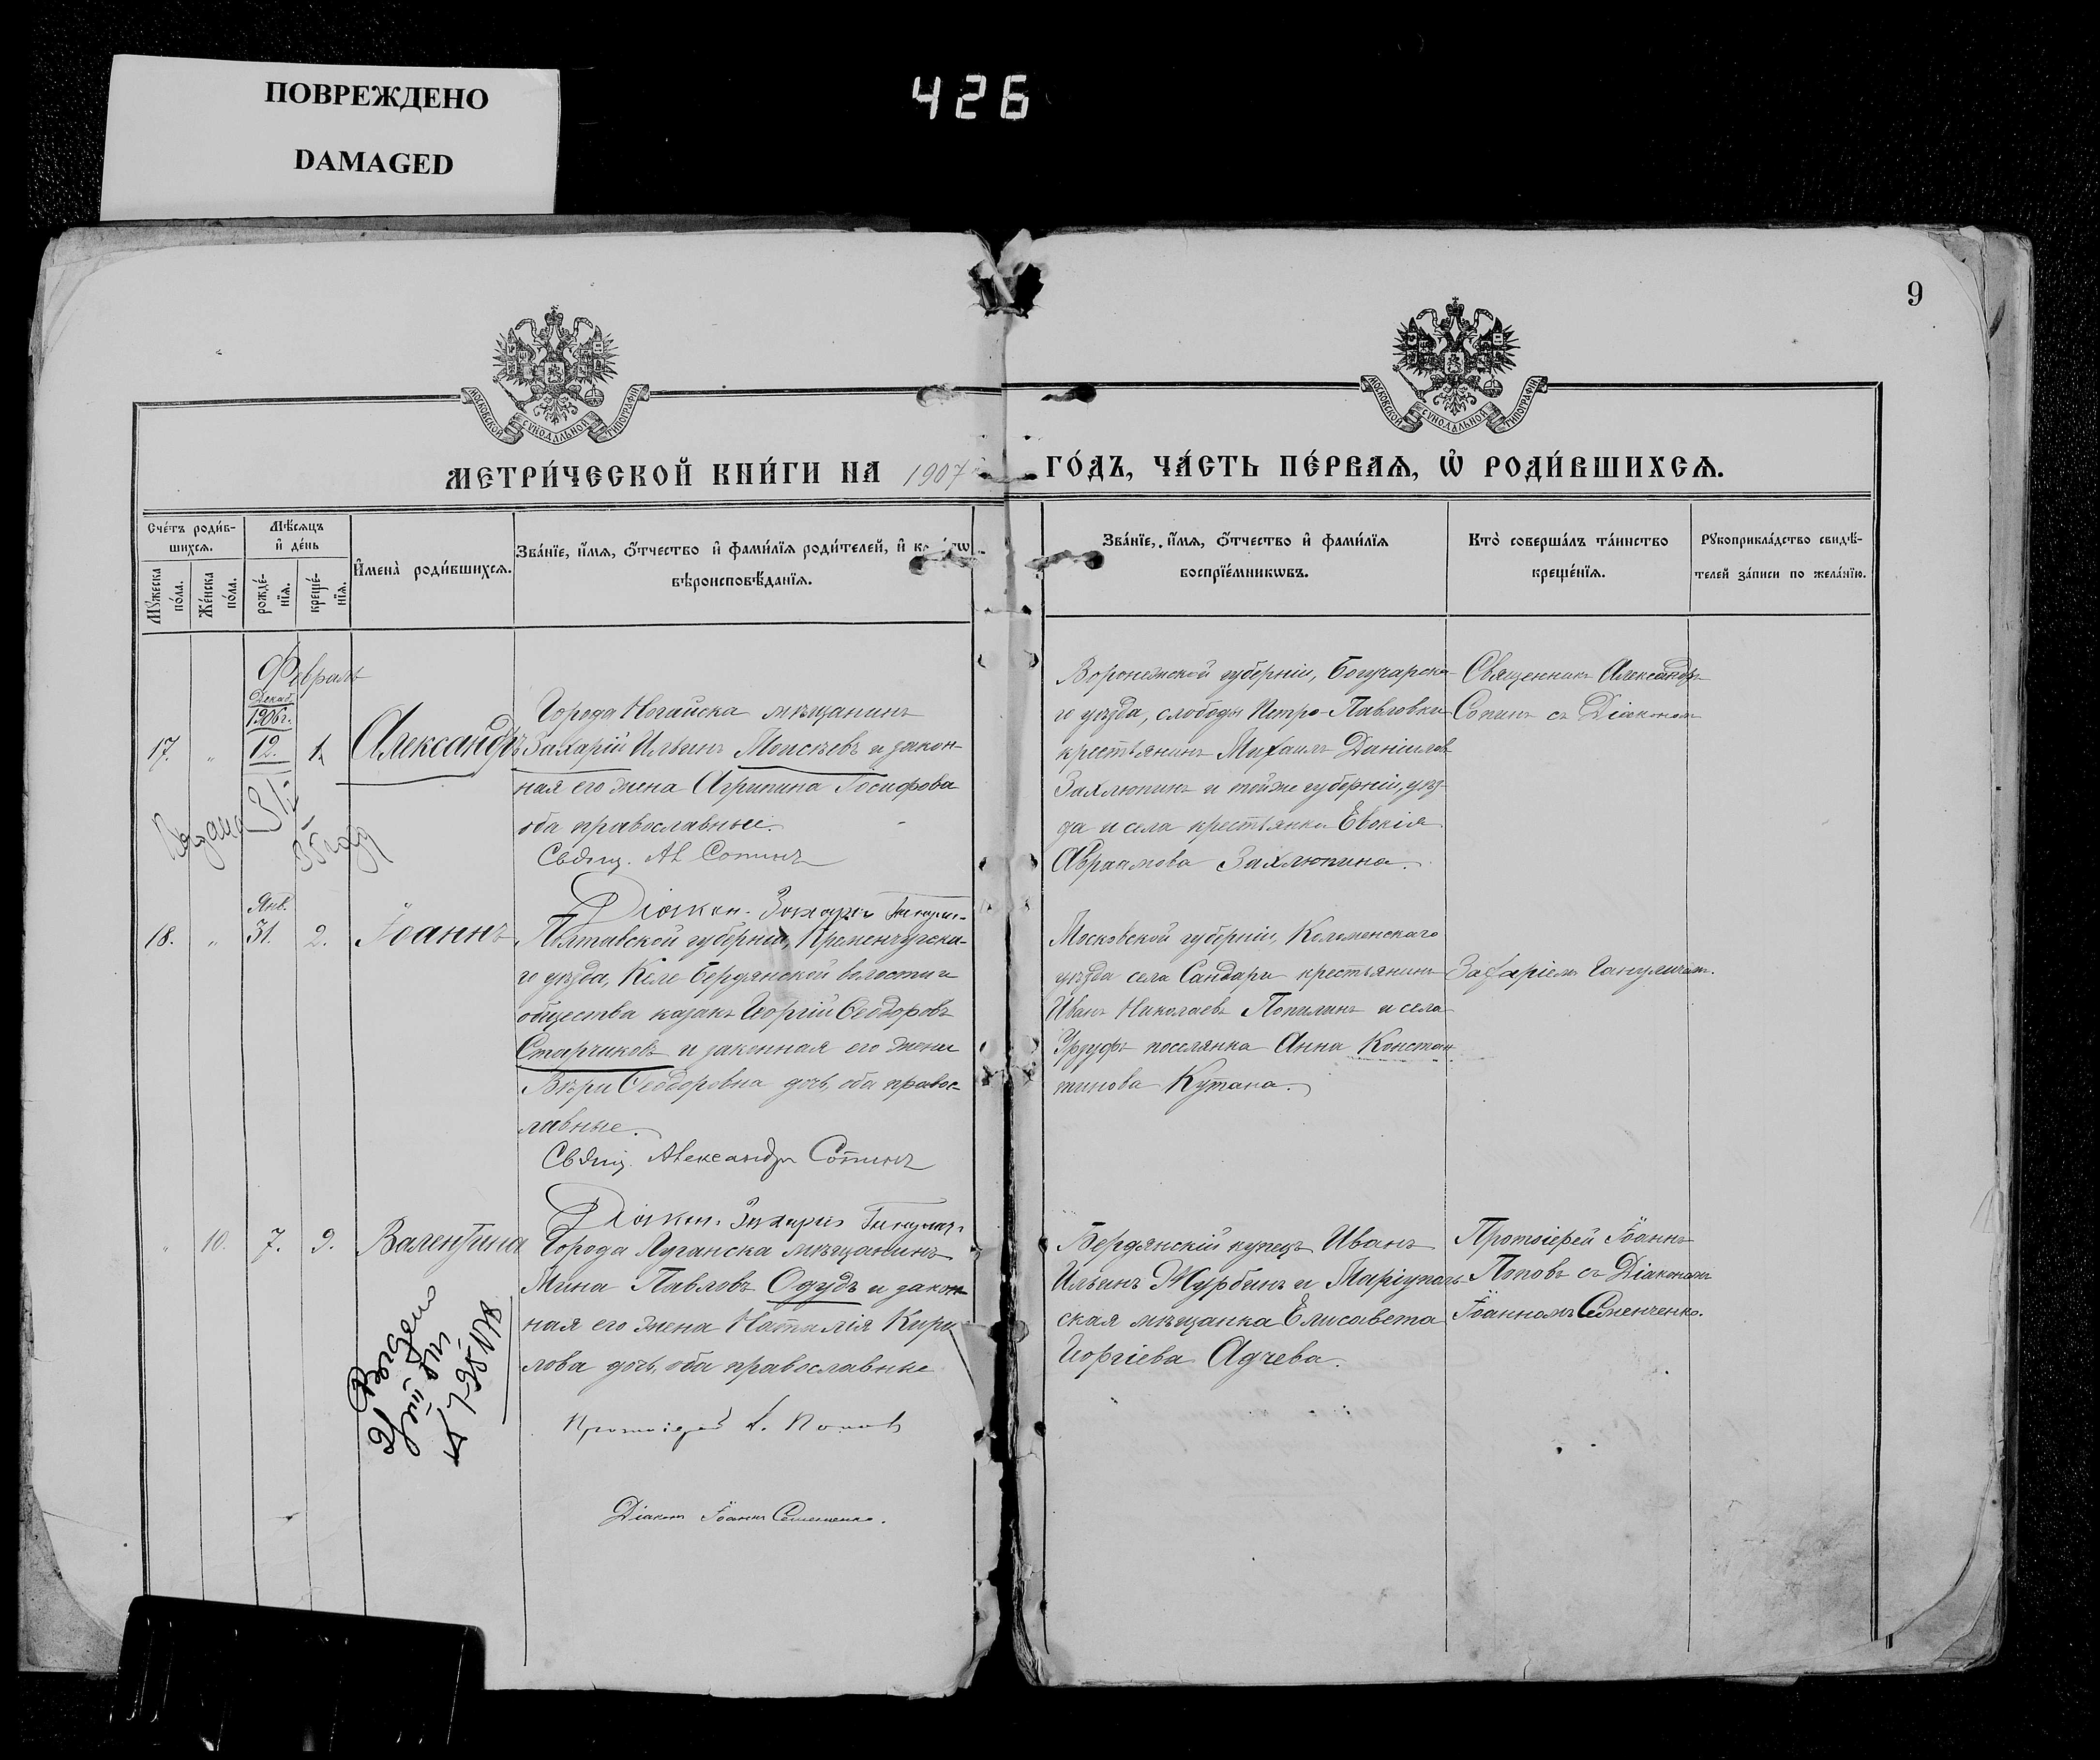 ПОВРЕЖДЕНО
DAMAGED
426
9
МОСКОВСКОЙ СѴНОДАЛЬНОЙ ТИПОГРАФІИ
МОСКОВСКОЙ СѴНОДАЛЬНОЙ ТИПОГРАФІИ
МЕТРИ́ЧЕСКОЙ КНИ́ГИ НА 1907 ГО́ДЪ, ЧА́СТЬ ПЕ́РВАѦ, Ѡ҆ РОДИ́ВШИХСѦ.
Сче́тъ роди́в-
шихсѧ.
Мꙋ́жеска по́ла.
Же́нска по́ла.
Мѣ́сѧцъ
и҆ де́нь
рожде́-
нїѧ.
креще́-
нїѧ.
И҆мена̀ роди́вшихсѧ.
Зва́нїе, и҆́мѧ, ѻ҆́тчество и҆ фами́лїѧ роди́телей, и҆
вѣроисповѣ́данїѧ.
Зва́нїе, и҆́мѧ, ѻ҆́тчество и҆ фами́лїѧ
воспрїе́мникѡвъ.
Кто̀ соверша́лъ та́инство
креще́нїѧ.
Рꙋкоприкла́дство свидѣ́-
телей за́писи по жела́нїю.
Февраль
Декаб.
1906 г.
17. " 12. 1. Александръ
Города Ногайска мѣщанинъ
Захарій Ильинъ Моисѣевъ и закон-
ная его жена Агрипина Іосифова
оба православные.
Свящ. Ал Сопинъ
Діакон. Захарій
Воронежской губерніи, Богучарска-
го уѣзда, слободы Петро-Павловки
крестьянинъ Михаилъ Даніилов
Захлюпинъ и тойже губерніи, уѣз-
да и села крестьянка Евокія
Авраамова Захлюпина.
Священникъ Александръ
Сопинъ съ Діакономъ
Янв.
18. " 31. 2. Іоаннъ
Полтавской губерніи, Кременчугска-
го уѣзда, Келе Бердянской волости и
общества казакъ Георгій Ѳеодоровъ
Старчиковъ и законная его жена
Вѣра Ѳеодоровна дочь, оба правос-
лавные.
Свящ. Александръ Сопинъ
Діакон. Захарій
Московской губерніи, Коломенскаго
уѣзда села Сандари крестьянинъ
Иванъ Николаевъ Попилинъ и села
Урзуфъ поселянка Анна Констан
тинова Кутана.
Захаріемъ
" 10. 7. 9. Валентина
Города Луганска мѣщанинъ
Мина Павловъ Одудъ и закон-
ная его жена Наталія Кири
лова дочь, оба православные
Протоіерей І. Поповъ
Діаконъ Іоаннъ Семенченко.
Бердянскій купецъ Иванъ
Ильинъ Журбинъ и Маріуполь-
ская мѣщанка Елисавета
Георгіева Адчева.
Протоіерей Іоаннъ
Поповъ съ Діакономъ
Іоанномъ Семенченко.